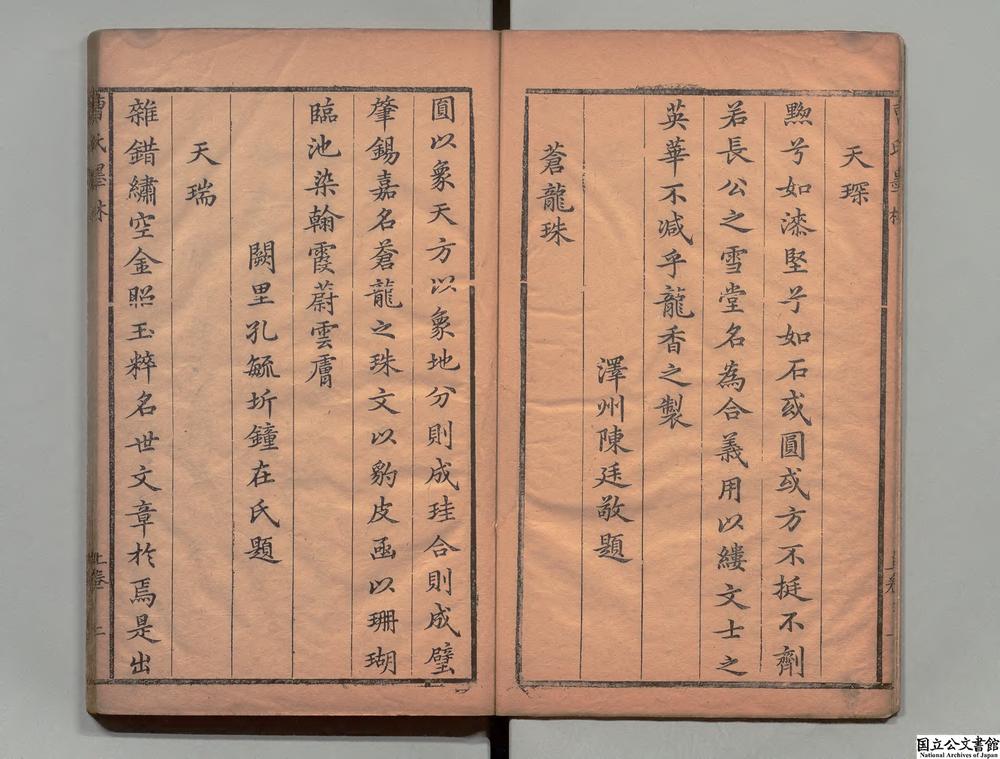 天琛
黝兮如漆堅兮如石或圓或方不挺不劑
若長公之雪堂名為合義用以縷文士之
英華不減乎龍香之製
澤州陳廷敬題
蒼龍珠
圓以象天方以象地分則成珪合則成璧
肇錫嘉名蒼龍之珠文以豹皮函以珊瑚
臨池染翰霞蔚雲膚
闕里孔毓圻鐘在氏題
天瑞
雜錯繡空金照玉粹名世文章於焉是出
曹氏墨林
上卷
二
国立公文書館
National Archives of Japan